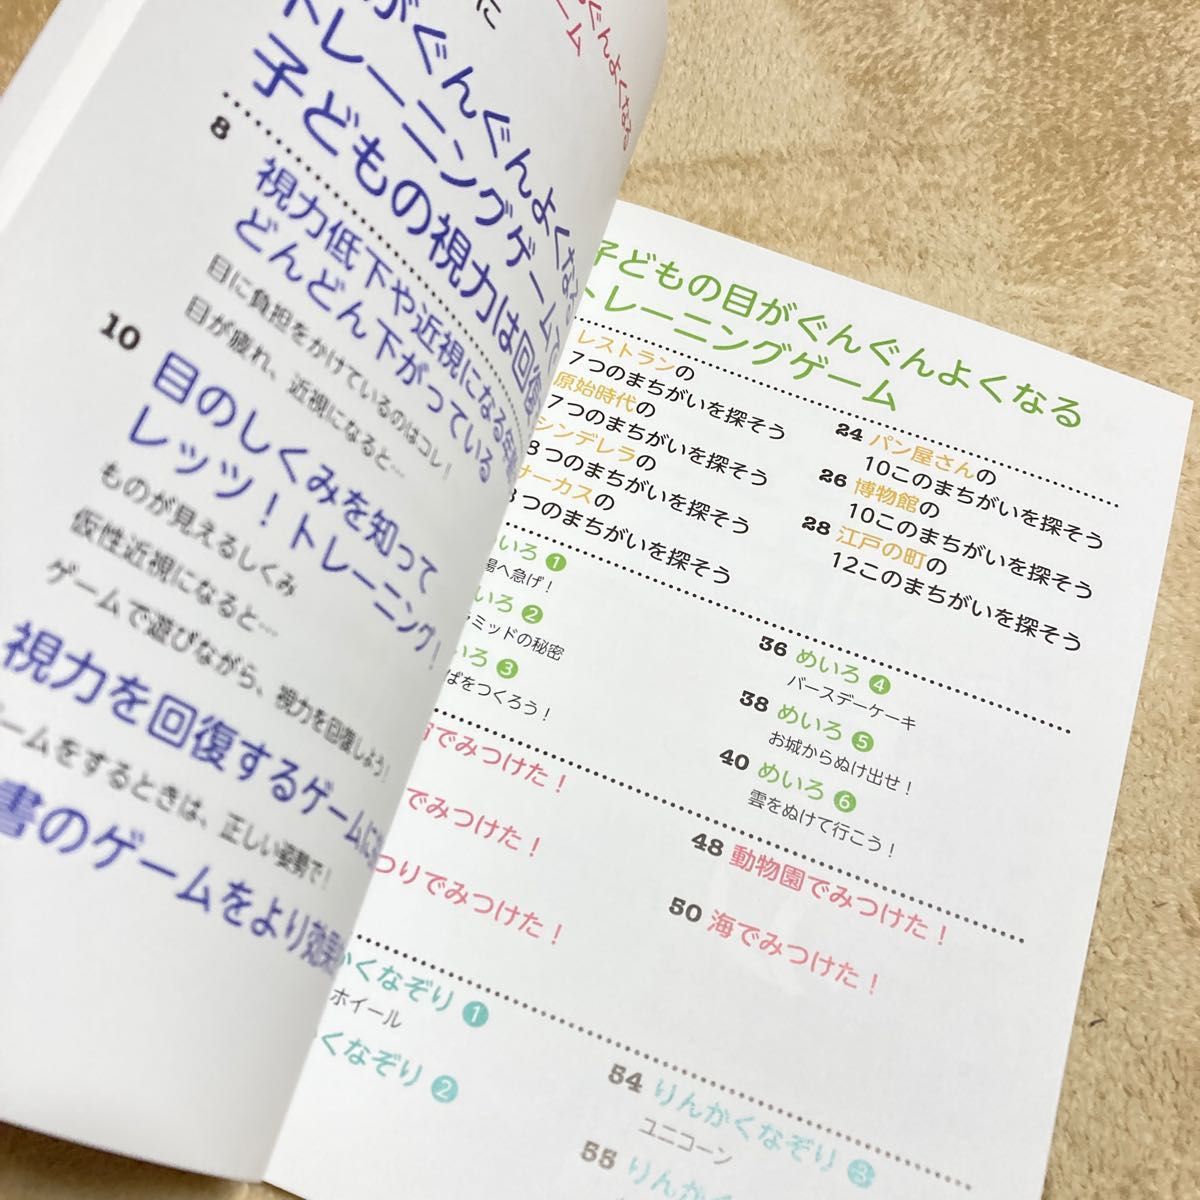 に
がぐんぐんよくなる
トレーニングゲームで
子どもの視力は回復
8
視力低下や近視になる年
どんどん下がっている
目に負担をかけているのはコレ！
目が疲れ、近視になると…
10
目のしくみを知って
レッツ！トレーニング！
ものが見えるしくみ
仮性近視になると…
ゲームで遊びながら、視力を回復しよう！
視力を回復するゲームに
ゲームをするときは、正しい姿勢で！
書のゲームをより効果
ぐんよくなる
ーム
子どもの目がぐんぐんよくなる
トレーニングゲーム
レストランの
7つのまちがいを探そう
原始時代の
7つのまちがいを探そう
シンデレラの
8つのまちがいを探そう
サーカスの
つのまちがいを探そう
24 パン屋さんの
10このまちがいを探そう
26 博物館の
10このまちがいを探そう
28 江戸の町の
12このまちがいを探そう
いろ 1
場へ急げ！
いろ 2
ミッドの秘密
いろ 3
ぱをつくろう！
36 めいろ 4
バースデーケーキ
38 めいろ 5
お城からぬけ出せ！
40 めいろ 6
雲をぬけて行こう！
でみつけた！
でみつけた！
つりでみつけた！
48 動物園でみつけた！
50 海でみつけた！
かくなぞり 1
ホイール
くなぞり 2
54 りんかくなぞり 3
ユニコーン
55 りんかくなぞり